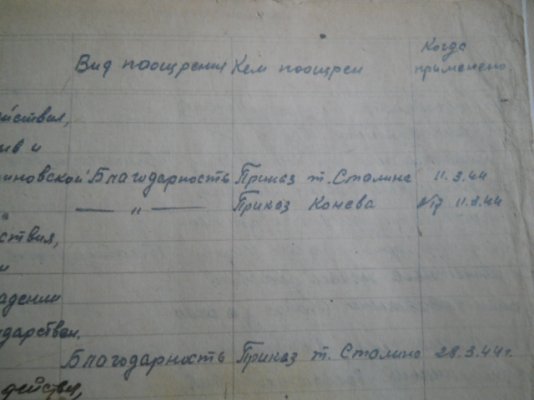 Вид поощрения Кем поощрен Когда применено.
йствия,
ив и
иновской Благодарность Приказ т. Сталина 11.3.44
— " — Приказ Конева №17 11.3.44
ствия,
и
адении
ударствен.
Благодарность Приказ т. Сталина 28.3.44г.
действия,